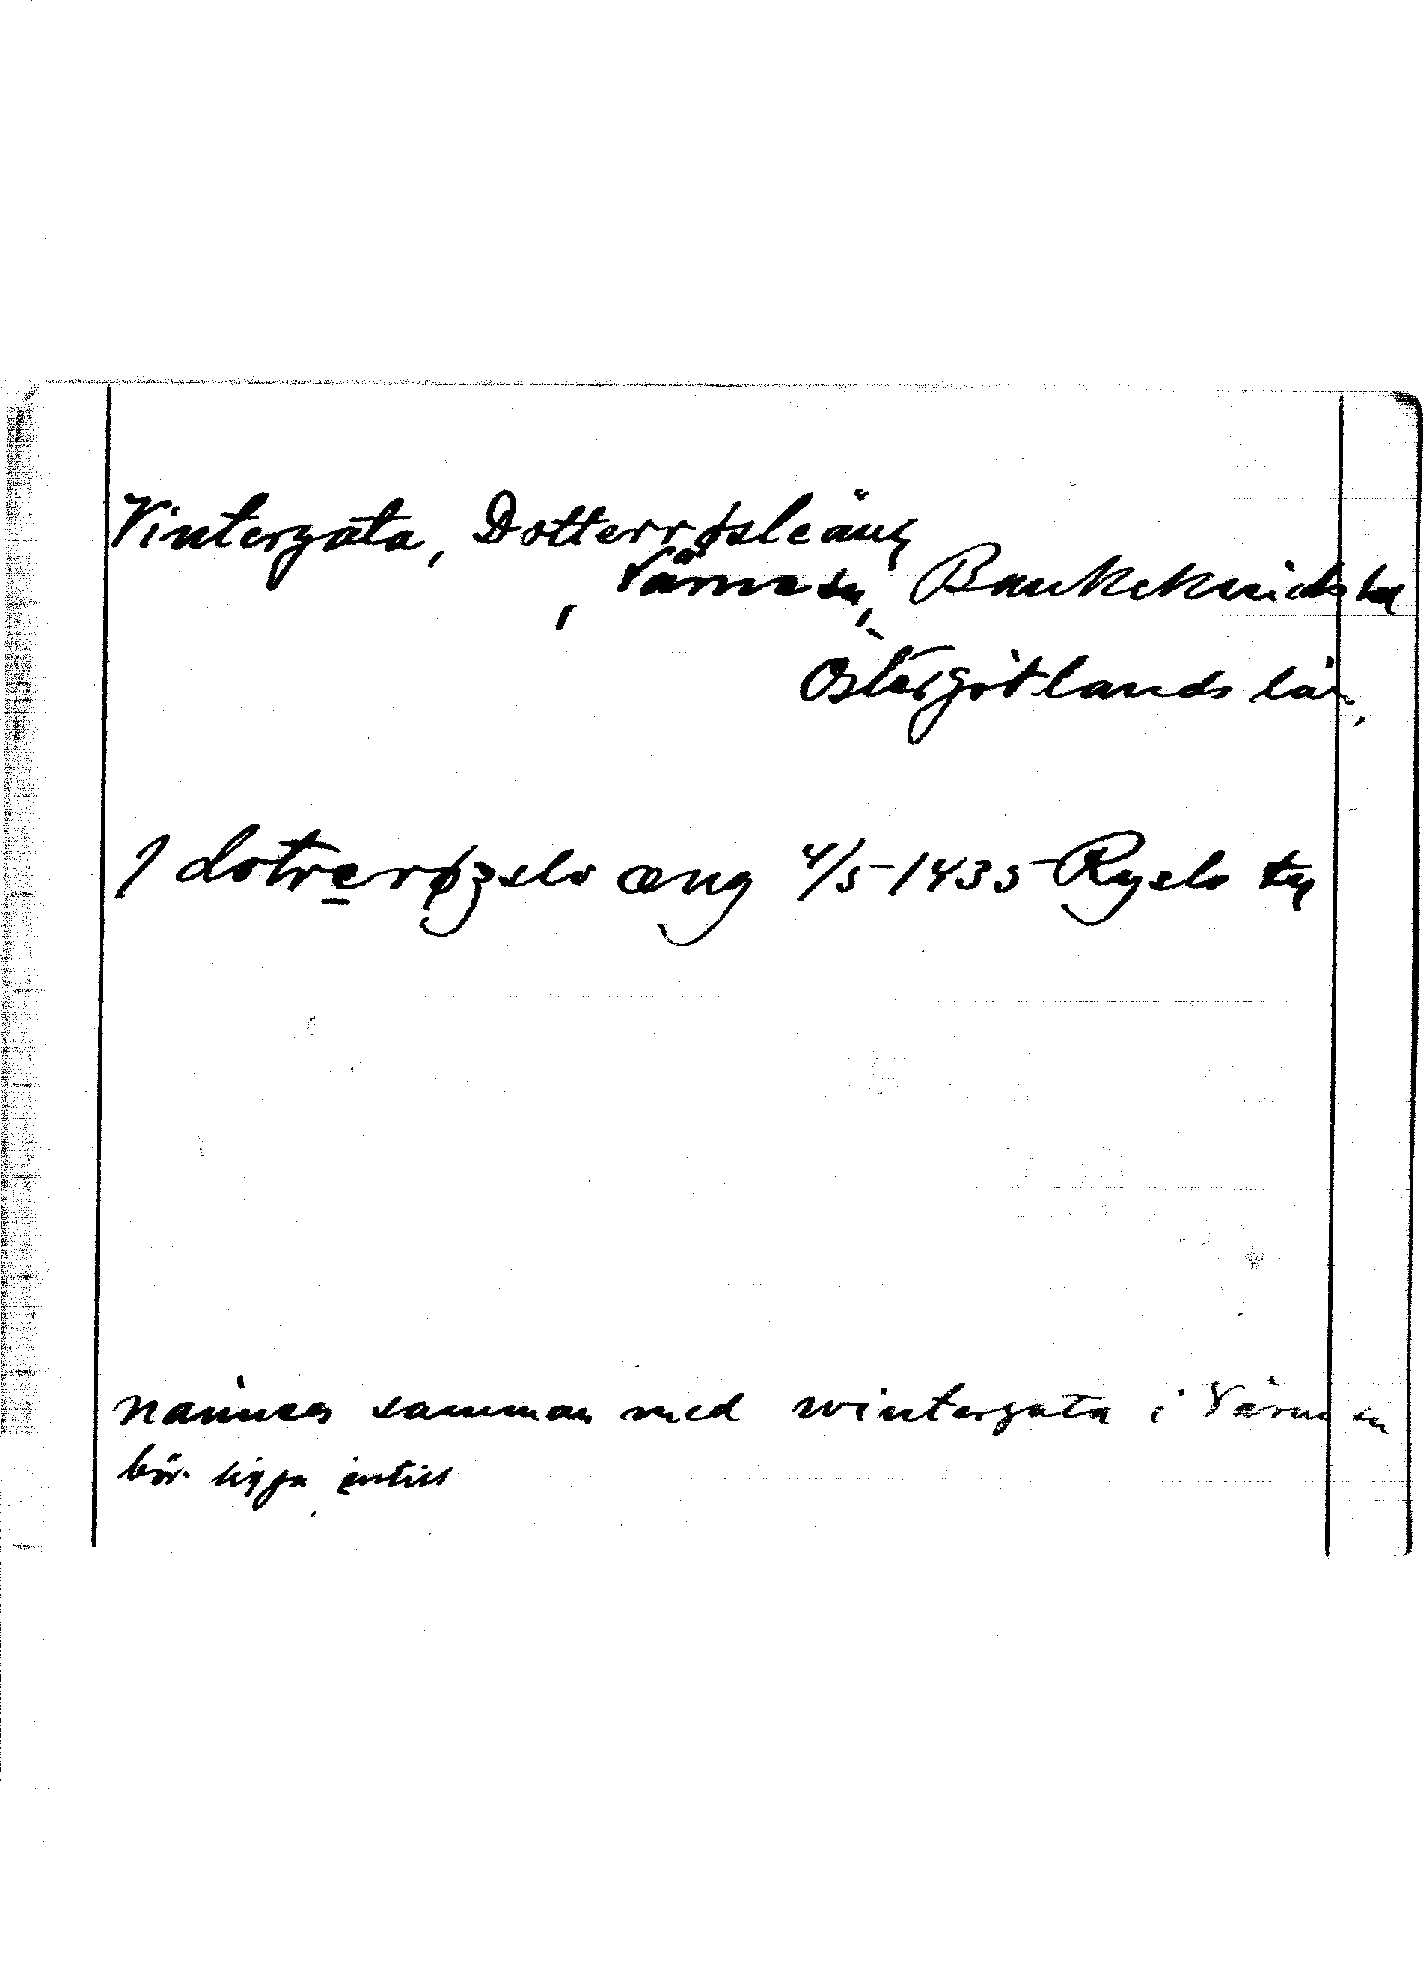 Vintergata, Dotterrøsleäng
, Vårna sn, Bankekinds hd
Östergötlands län,
I dotrerøzslo æng 4/5-1435 Ryslo ty
nämnes samman med wintergata i Vårna sn
bör ligga intill